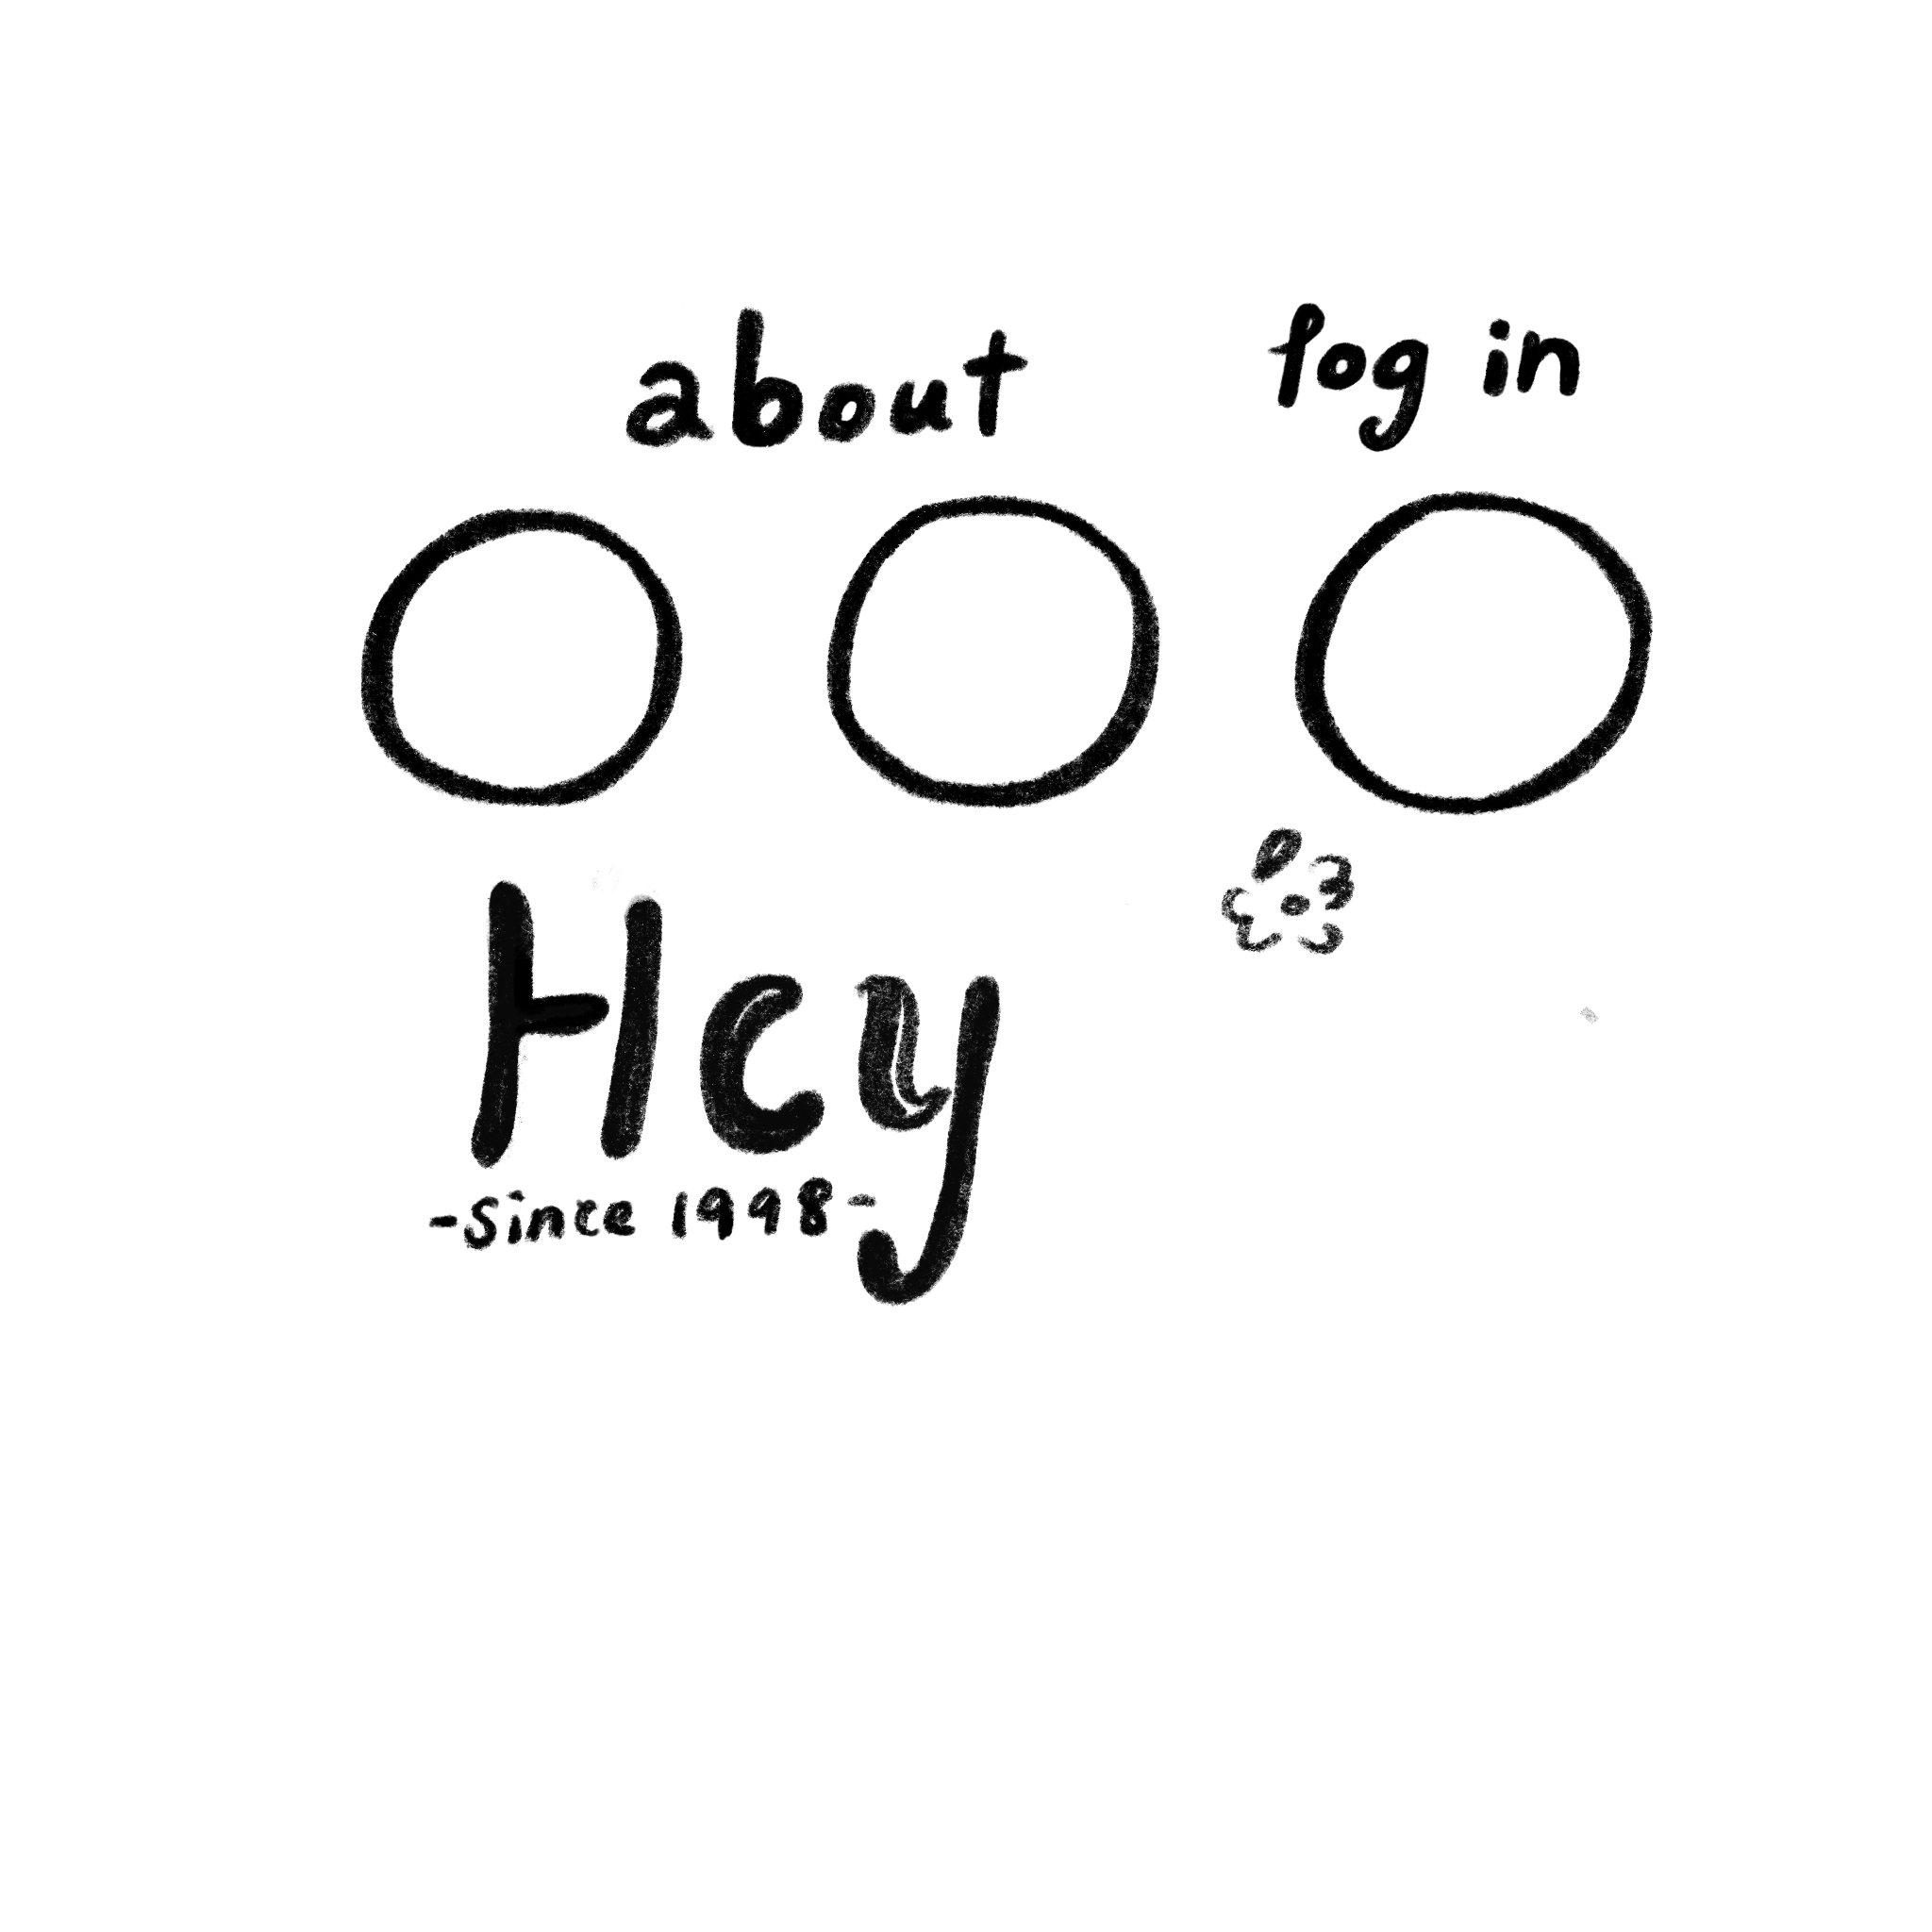 about log in
Hcy
-since 1998-